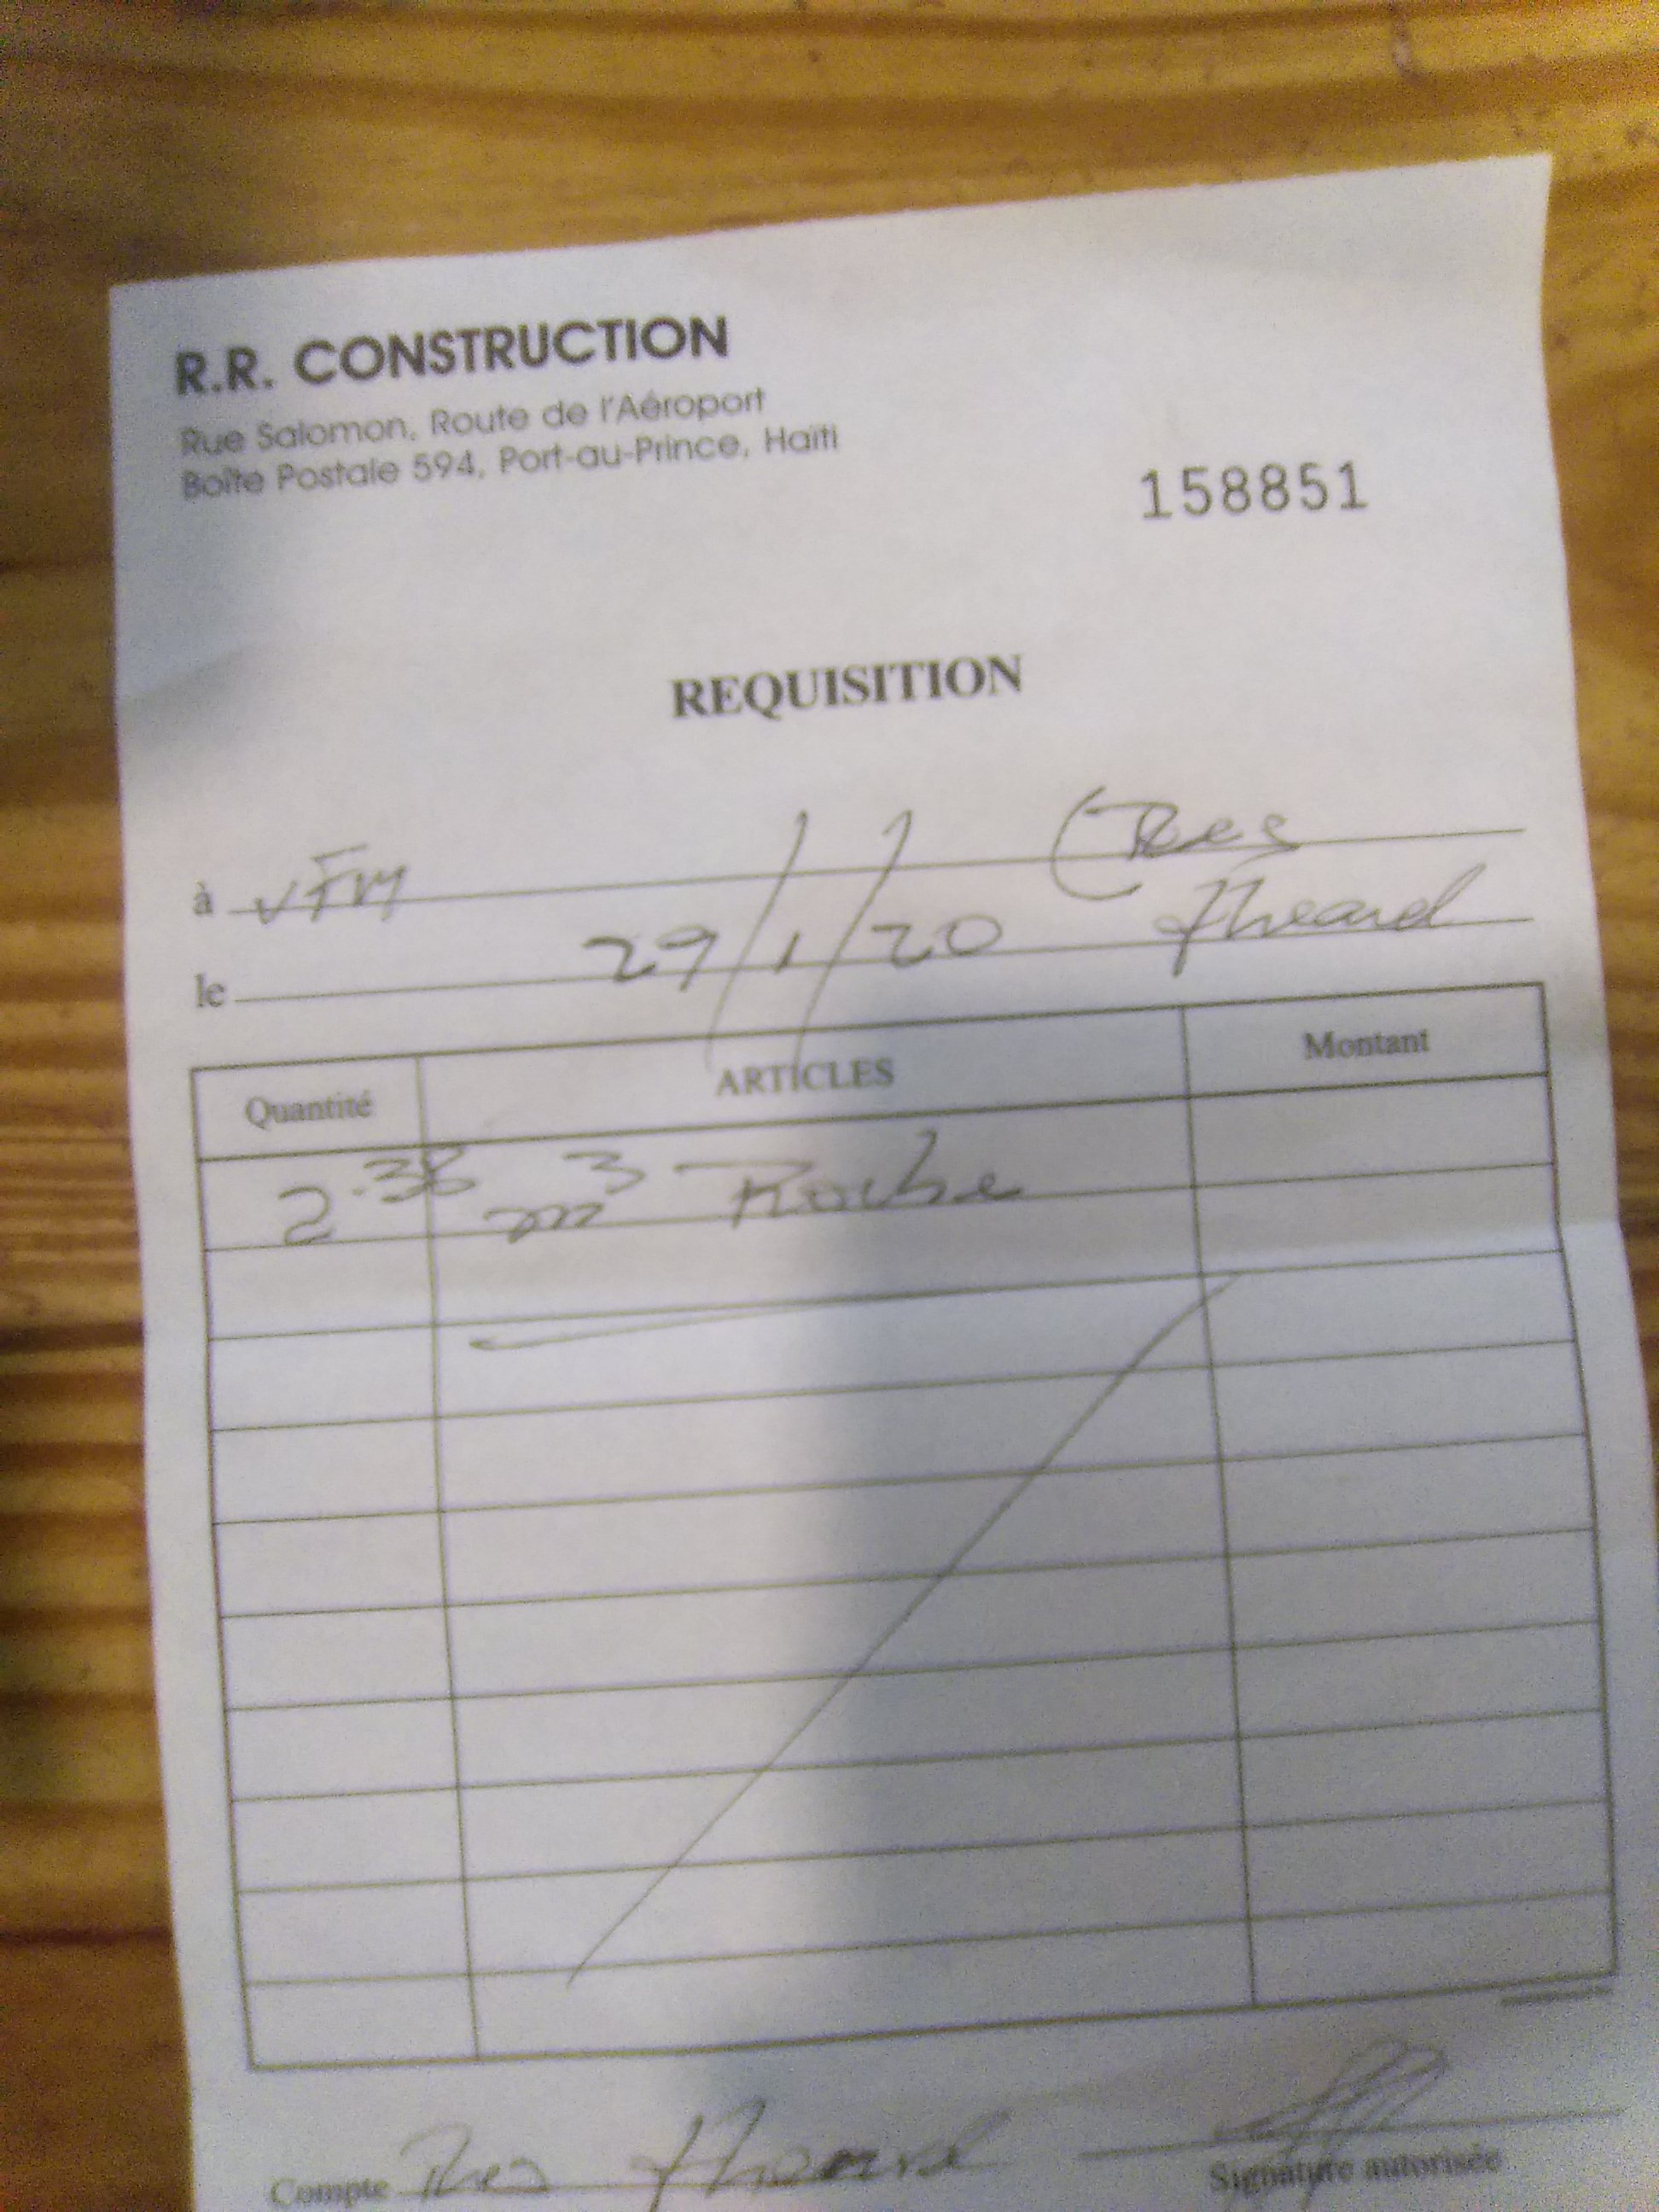 R.R. CONSTRUCTION
Rue Salomon, Route de l'Aéroport
Boîte Postale 594, Port-au-Prince, Haïti
158851
REQUISITION
à VFM
le 29/1/20
Quantité ARTICLES Montant
2.38 m3 Roche
Compte
Signature autorisée